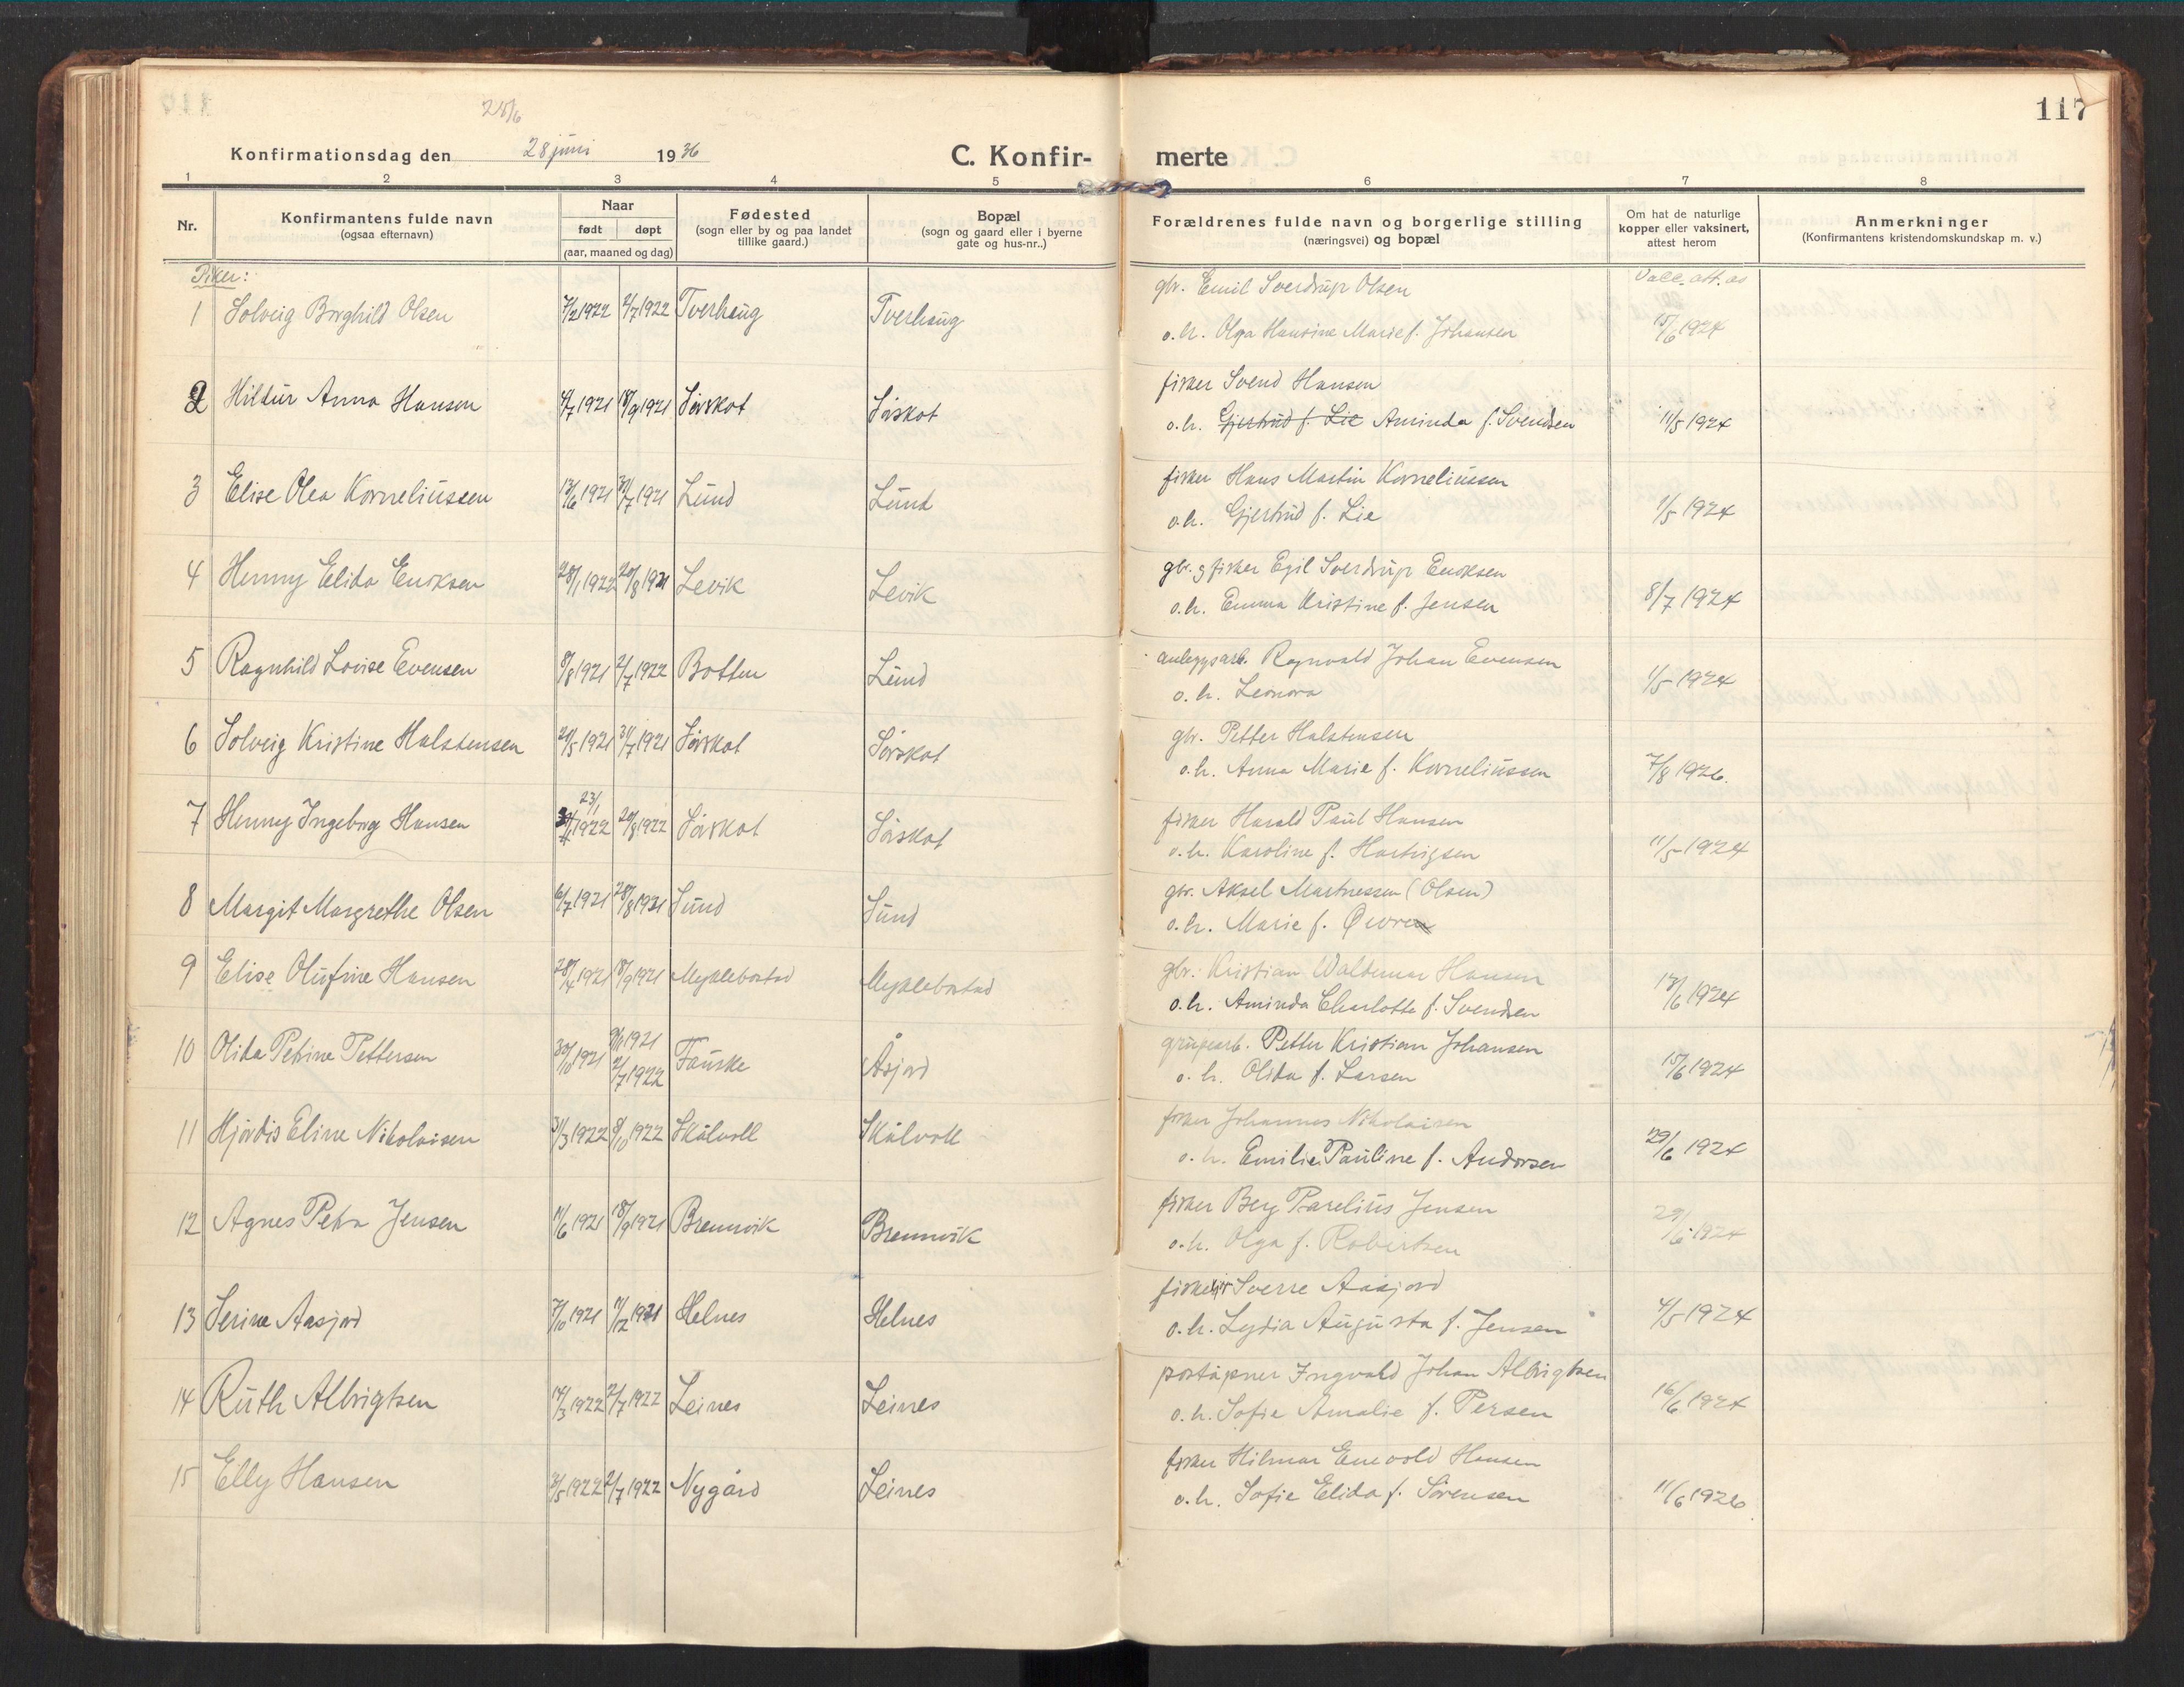 117
28/6
Konfirmationsdag den 28 juni 1936
C. Konfir-merte
1 2 3 4 5 6 7 8
Nr.
Konfirmantens fulde navn
(ogsaa efternavn)
Naar
født døpt
(aar, maaned og dag)
Fødested
(sogn eller by og paa landet
tillike gaard.)
Bopæl
(sogn og gaard eller i byerne
gate og hus-nr..)
Forældrenes fulde navn og borgerlige stilling
(næringsvei) og bopæl
Om hat de naturlige
kopper eller vaksinert,
attest herom
Anmerkninger
(Konfirmantens kristendomskundskap m. v.)
Piker:
Vacc. att. av
1 Solveig Borghild Olsen 7/2 1922 2/7 1922 Tverhaug Tverhaug gbr. Emil Sverdrup Olsen 15/6 1924
o. h. Olga Hansine Marie f. Johansen
2 Hildur Anna Hansen 4/7 1921 18/9 1921 Sørskot Sørskot fisker Svend Hansen 11/5 1924
o. h. Gjertrud f. Lie Aminda f. Svendsen
3 Elise Olea Korneliussen 13/6 1921 31/7 1921 Lund Lund fisker Hans Martin Korneliussen 1/5 1924
o. h. Gjertrud f. Lie
4 Henny Elida Enoksen 28/1 1922 20/8 1921 Levik Levik gbr. og fisker Egil Sverdrup Enoksen 8/7 1924
o. h. Emma Kristine f. Jensen
5 Ragnhild Lovise Evensen 8/8 1921 2/7 1922 Botten Lund anleggsarb. Ragnvald Johan Evensen 1/5 1924
o. h. Leonora
6 Solveig Kristine Halstensen 20/5 1921 31/7 1921 Sørskot Sørskot gbr. Petter Halstensen 7/8 1926.
o. h. Anna Marie f. Korneliussen
23/1
7 Henny Ingeborg Hansen 1922 20/8 1922 Sørskot Sørskot fisker Harald Paul Hansen 11/5 1924
o. h. Karoline f. Hartvigsen
8 Margit Margrethe Olsen 6/7 1921 28/8 1921 Sund Sund gbr. Aksel Martnessen (Olsen)
o. h. Marie f. Øvre
9 Elise Olufine Hansen 28/4 1921 18/9 1921 Myklebostad Myklebostad gbr. Kristian Waldemar Hansen 13/6 1924
o. h. Aminda Charlotte f. Svendsen
10 Olida Petrine Pettersen 30/10 1921 1921 2/7 1922 Fauske Åsjord grupearb. Petter Kristian Johansen 15/6 1924
o. h. Olida f. Larsen
11 Hjørdis Eline Nikolaisen 31/3 1922 8/10 1922 Skålvoll Skålvoll fisker Johannes Nikolaisen 29/6 1924
o. h. Emilie Pauline f. Andorsen
12 Agnes Petra Jensen 11/6 1921 18/9 1921 Brennvik Brennvik fisker Berg Parelius Jensen 29/6 1924
o. h. Olga f. Robertsen
13 Serine Aasjord 7/10 1921 11/12 1921 Helnes Helnes Sverre Aasjord 4/5 1924
o. h. Lydia Augusta f. Jensen
14 Ruth Albrigtsen 14/3 1922 2/7 1922 Leines Leines poståpner Ingvald Johan Albrigtsen 16/6 1924
o. h. Sofie Amalie f. Persen
15 Elly Hansen 3/5 1922 2/7 1922 Nygård Leines fisker Hilmar Enevold Hansen 11/6 1926
o. h. Sofie Elida f. Sørensen